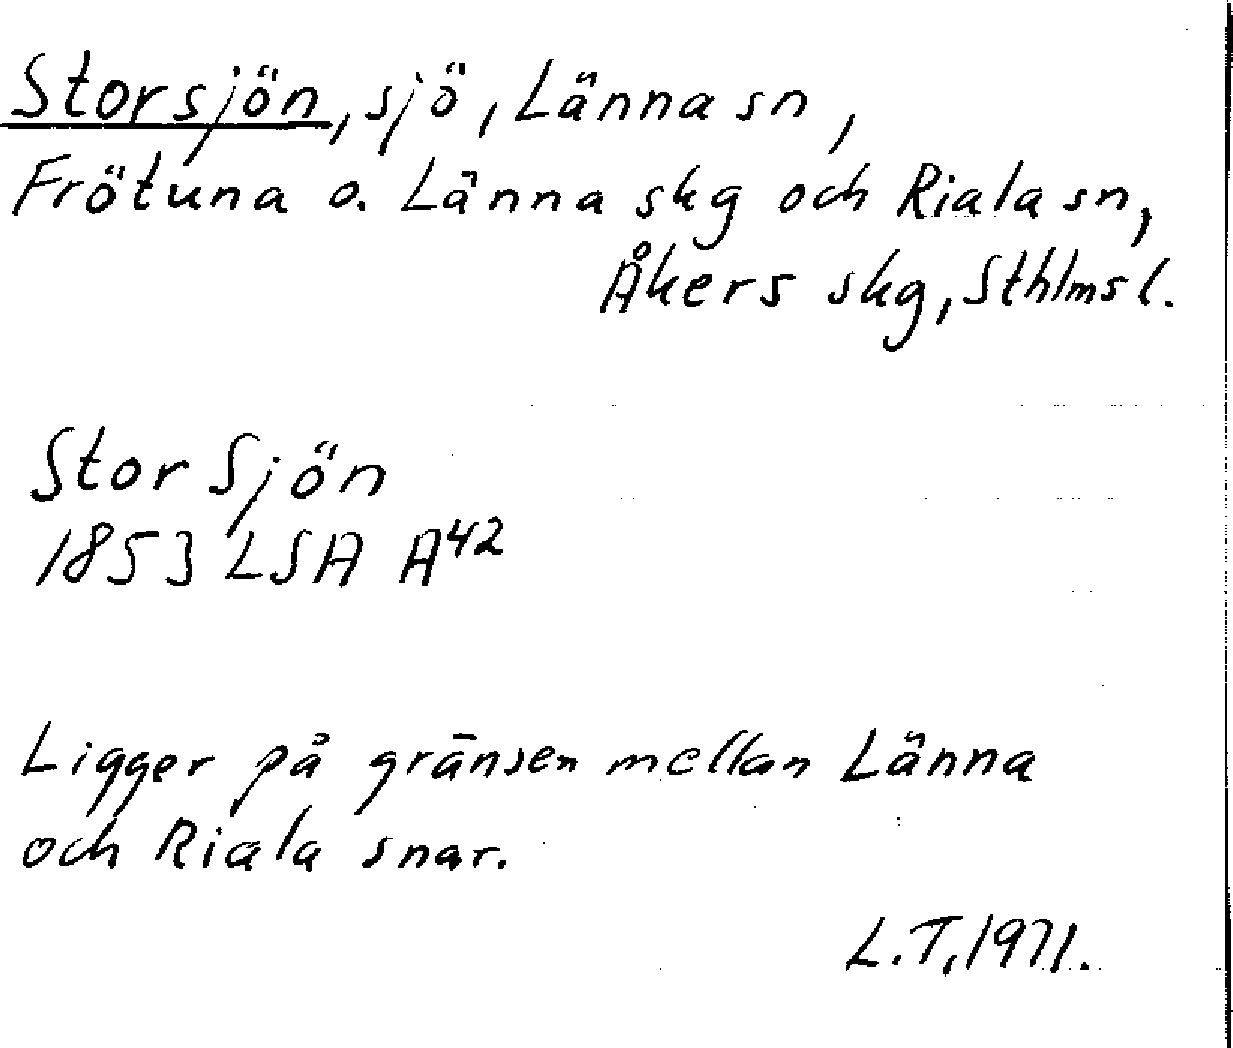 Storsjön, sjö, Länna sn,
Frötuna o. Länna skg och Riala sn,
Åkers skg, Sthlms l.
Stor Sjön
1853 LSA A42
Ligger på gränsen mellan Länna
och Riala snar.
L.T, 1971.